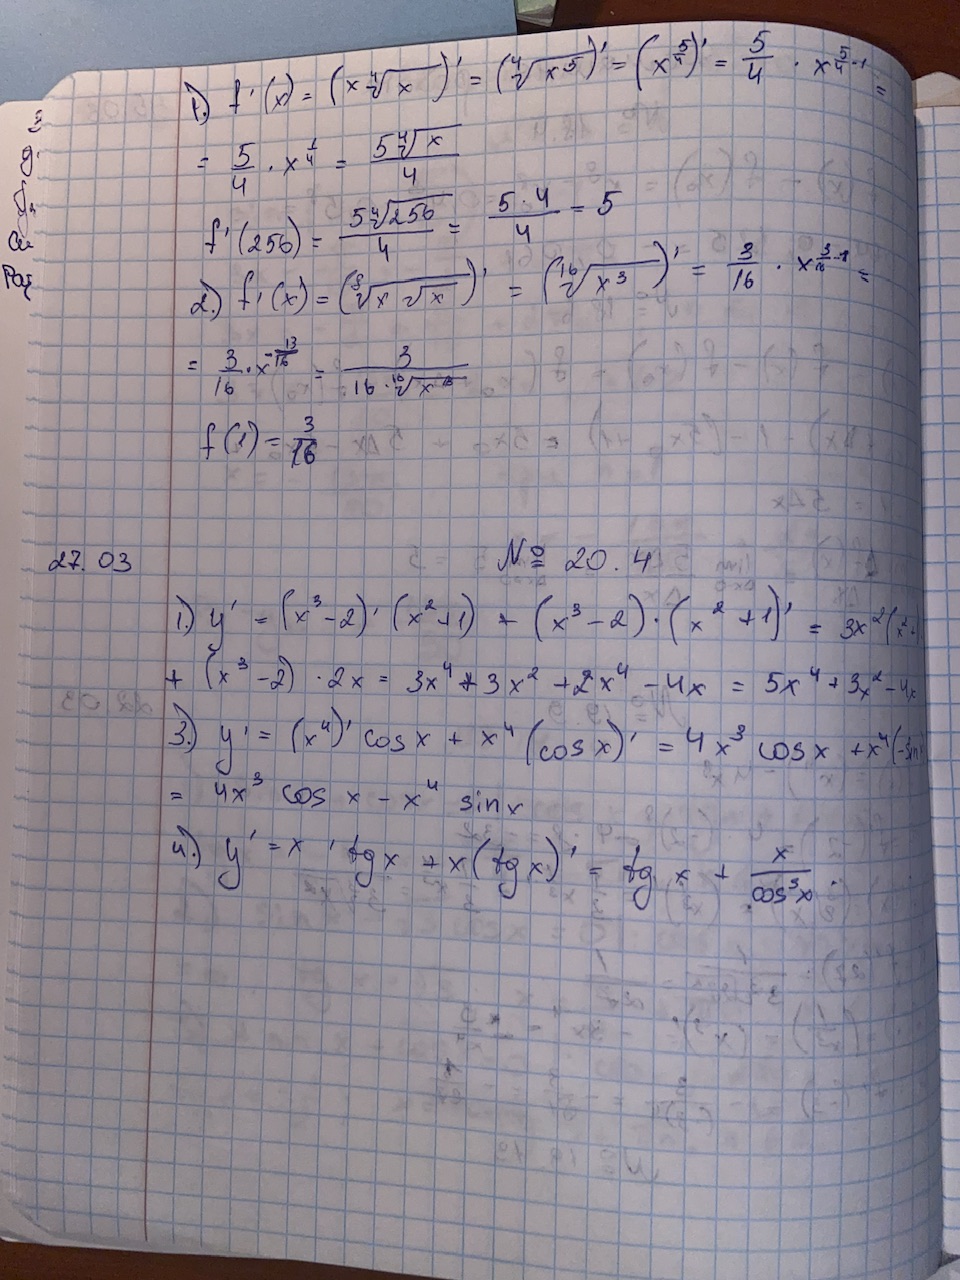 1.) f'(x) = (x⁴√x)' = (⁴√x⁵)' = (x^(5/4))' = 5/4 · x^(5/4-1) =
= 5/4 · x^(1/4) = 5⁴√x / 4
f'(256) = 5⁴√256 / 4 = 5·4 / 4 = 5
2.) f'(x) = (⁸√x√x)' = (¹⁶√x³)' = 3/16 · x^(3/16-1) =
= 3/16 · x^(-13/16) = 3 / 16·¹⁶√x¹³
f(1) = 3/16
27.03 № 20.4
1.) y' = (x³-2)' (x²+1) + (x³-2)·(x²+1)' = 3x²(x²+
+ (x³-2)·2x = 3x⁴+3x²+2x⁴-4x = 5x⁴+3x²-4x
3.) y' = (x⁴)' cosx + x⁴ (cosx)' = 4x³ cosx + x⁴(-sin
= 4x³ cos x - x⁴ sinx
4.) y' = x' tgx + x(tgx)' = tg x + x / cos²x.